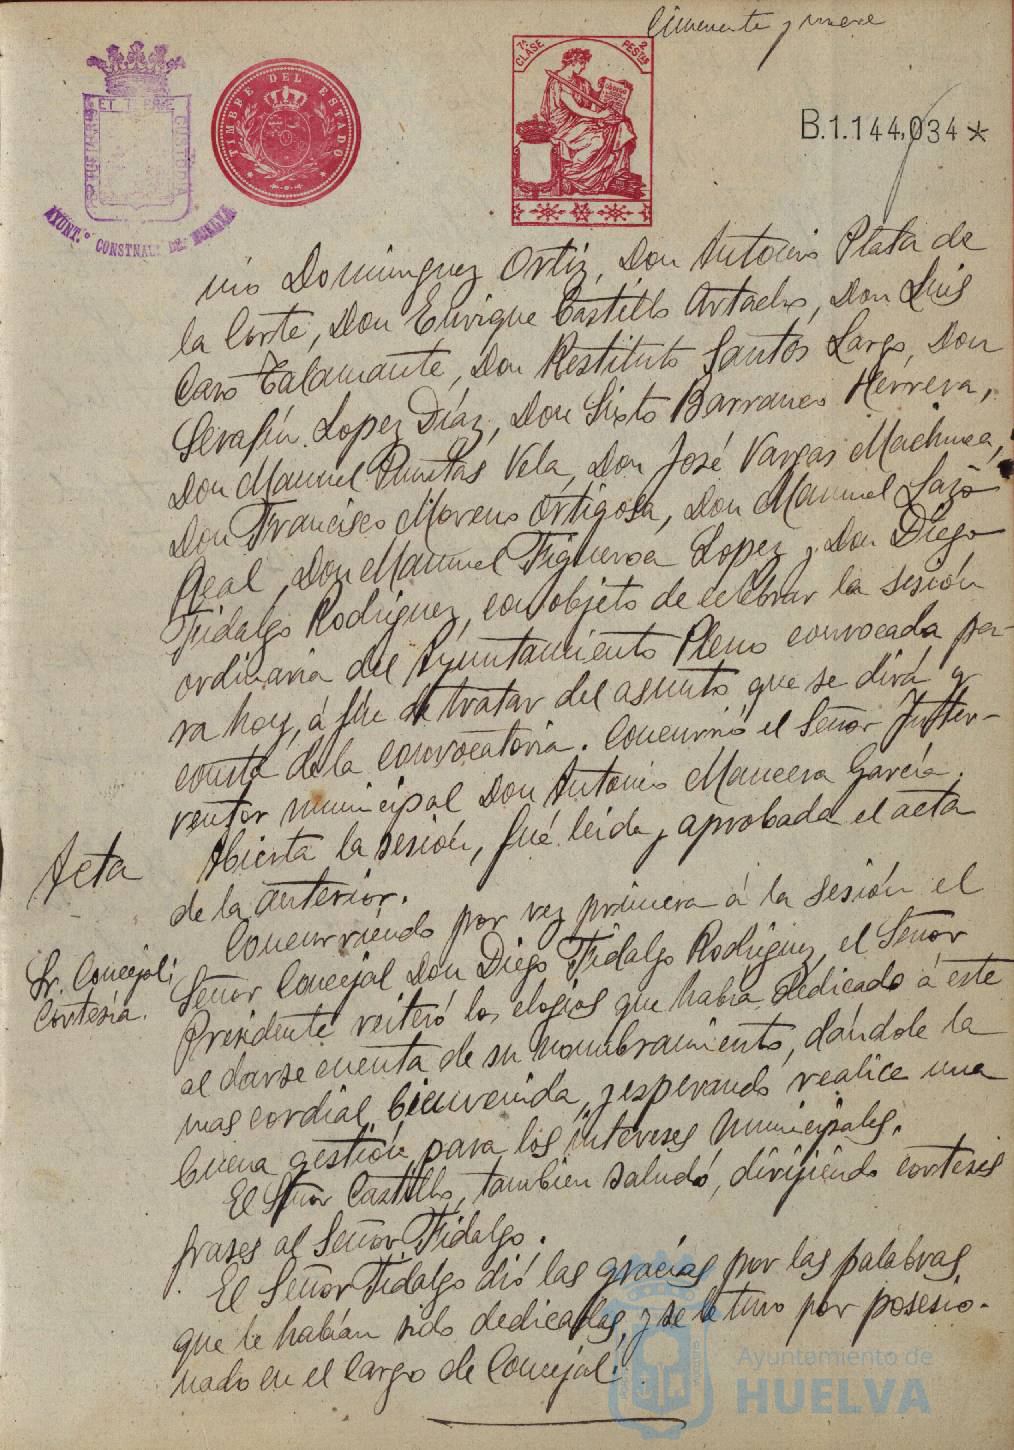 Cincuenta y nueve
7ª CLASE 2 PESTAS
TIMBRE DEL ESTADO
B.1.144,034*
AYUNT.º CONSTNAL. DE HUELVA
nio Dominguez Ortiz, Don Antonio Plata de
la Corte, Don Enrique Castillo Artacho, Don Luis
Caro Talamante, Don Restituto Santos Largo, Don
Serafin Lopez Díaz, Don Sixto Barranco Herrera,
Don Manuel Puntas Vela, Don José Vargas Machuca,
Don Francisco Moreno Ortigosa, Don Manuel Lazo
Real, Don Manuel Figueroa Lopez y Don Diego
Fidalgo Rodriguez, con objeto de celebrar la sesión
ordinaria del Ayuntamiento Pleno convocada pa-
ra hoy, á fin de tratar del asunto que se dirá y
consta de la convocatoria. Concurrió el Señor Inter-
ventor municipal Don Antonio Mancera García.
Acta
Abierta la sesión, fué leida y aprobada el acta
de la anterior.
Sr. Concejal:
Cortesía.
Concurriendo por vez primera á la sesión el
Señor Concejal Don Diego Fidalgo Rodriguez, el Señor
Presidente reiteró los elogios que habia dedicado á este
al darse cuenta de su nombramiento, dándole la
mas cordial bienvenida, y esperando realice una
buena gestión para los intereses municipales.
El Señor Castillo, tambien saludó, dirijiendo corteses
frases al Señor Fidalgo.
El Señor Fidalgo dió las gracias por las palabras
que le habían sido dedicadas, y se le tuvo por posesio-
nado en el cargo de Concejal.
Ayuntamiento de
HUELVA